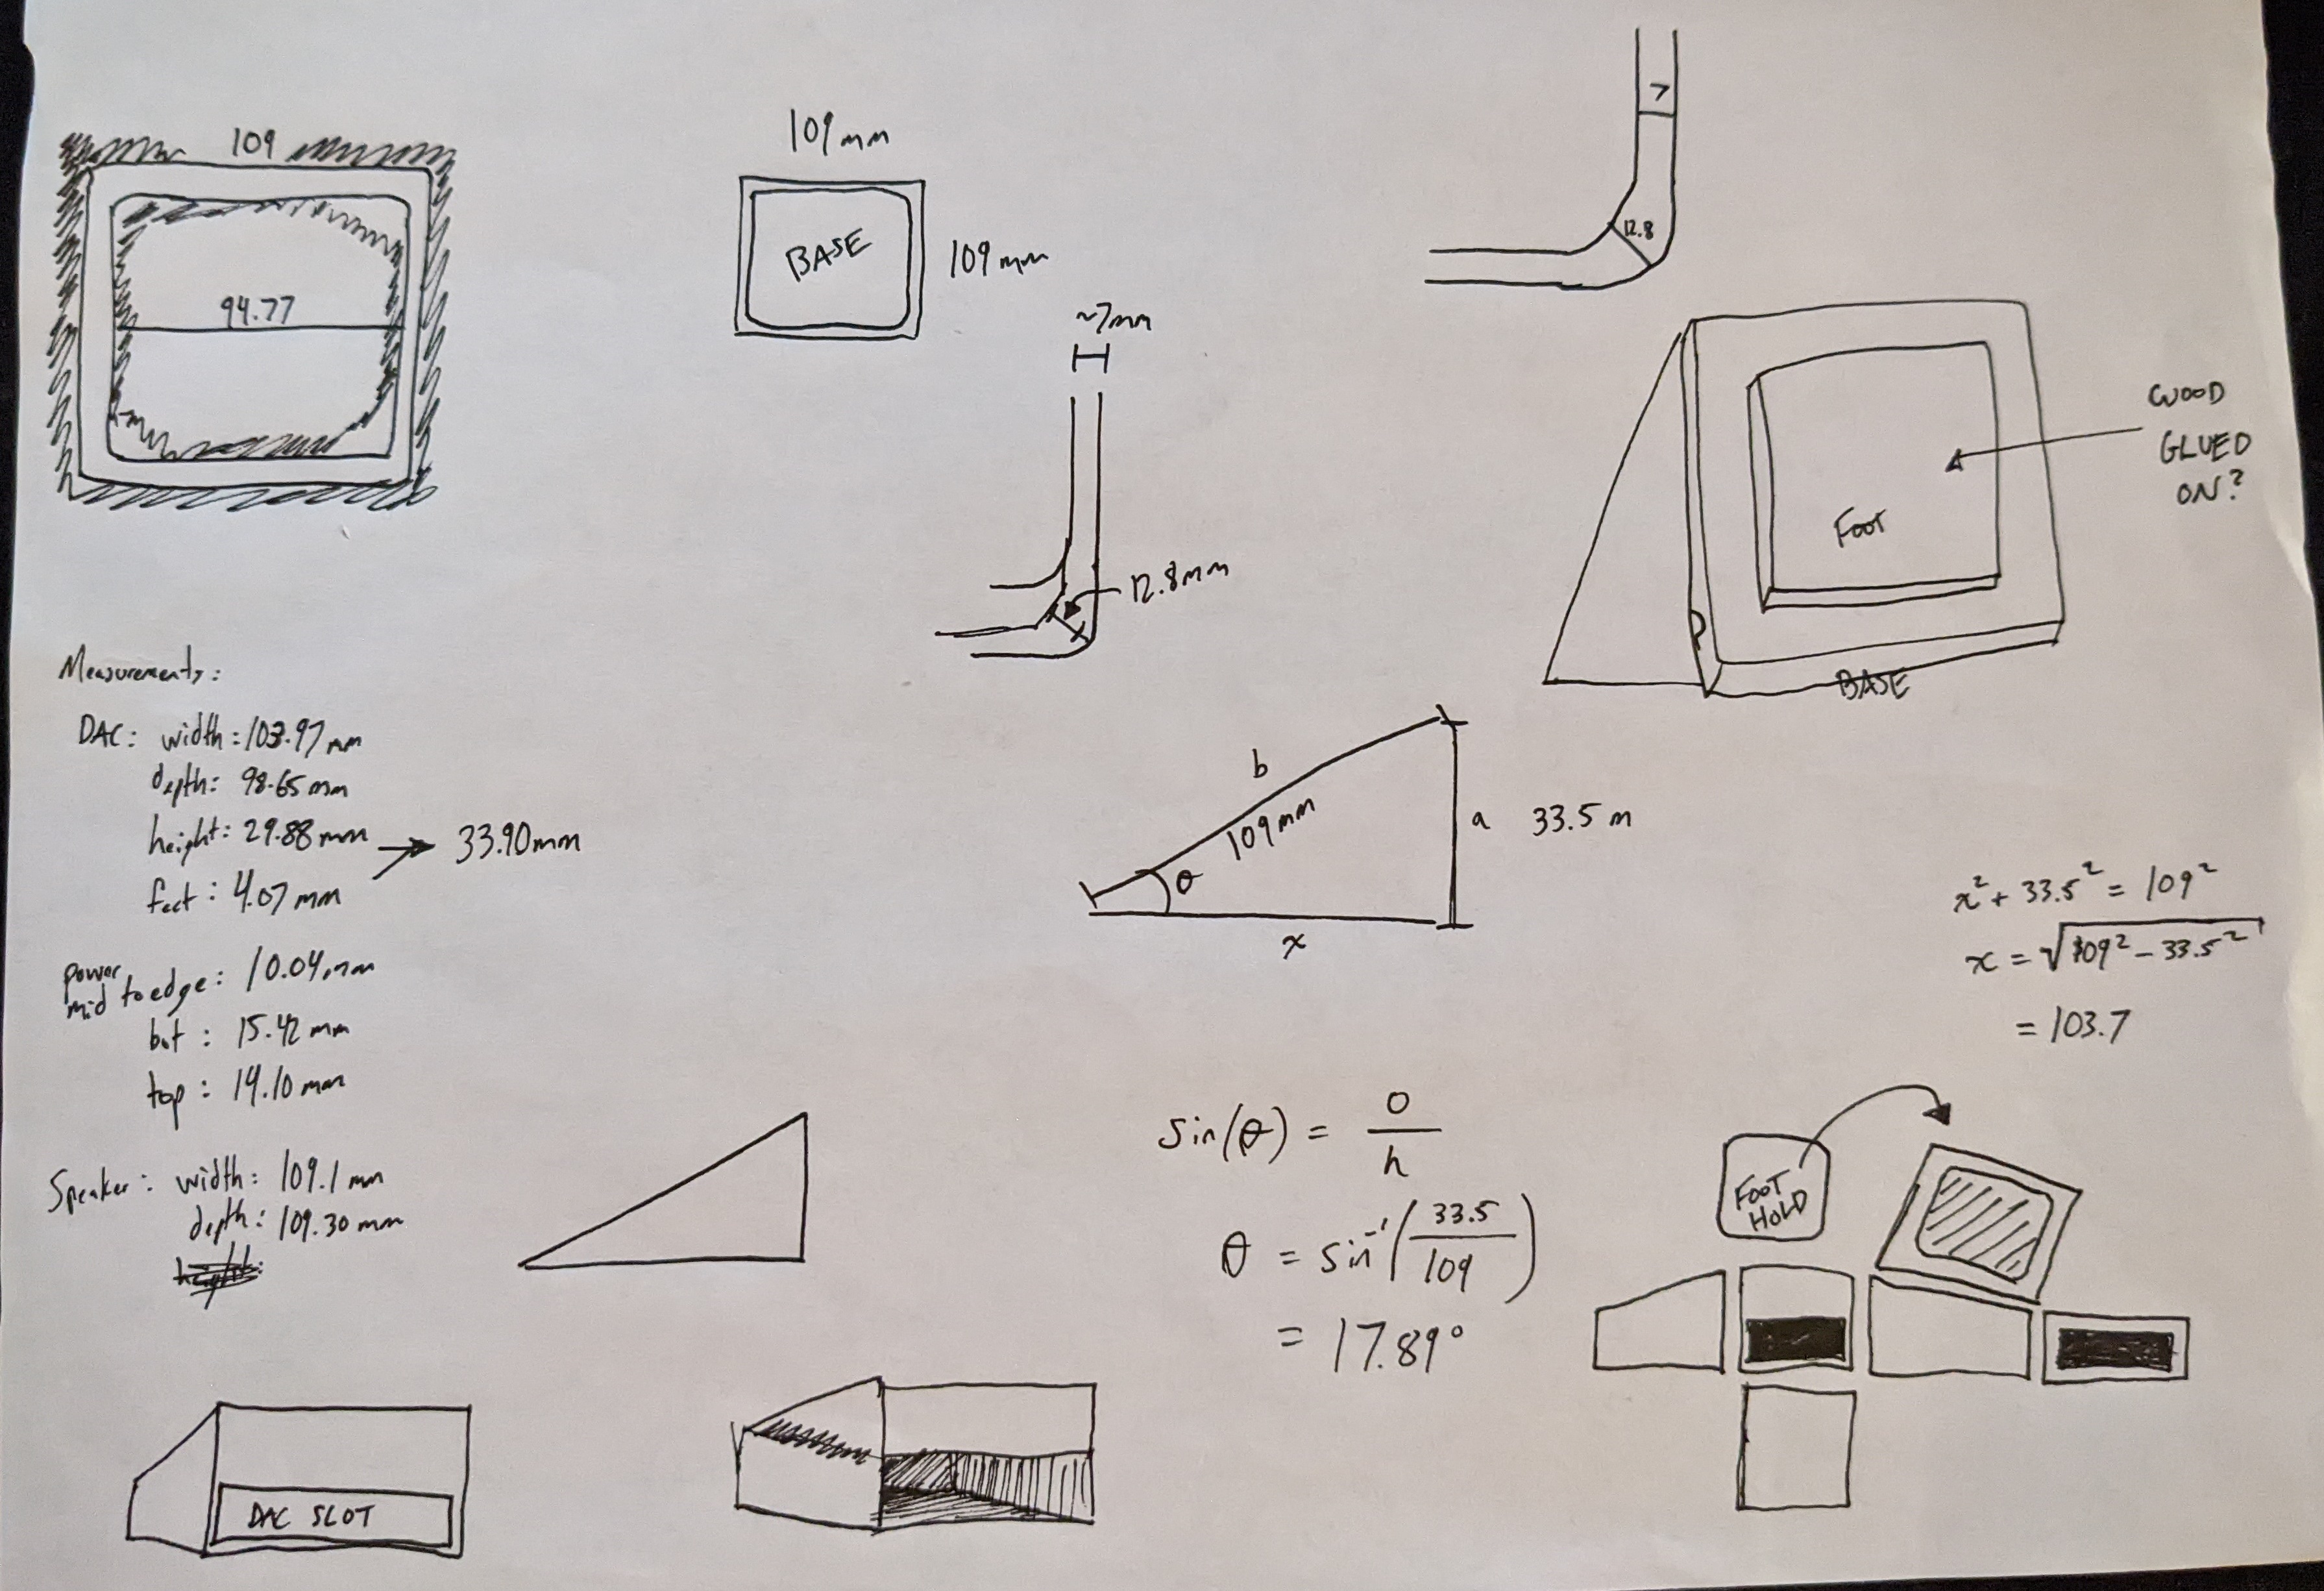 109
94.77
109mm
BASE
109mm
~7mm
12.8mm
7
12.8
WOOD
GLUED
ON?
FOOT
BASE
Measurements:
DAC: width: 103.97mm
depth: 98.65mm
height: 29.88mm → 33.90mm
feet: 4.07mm
power
mid to edge: 10.04mm
bot: 15.42mm
top: 14.10mm
Speaker: width: 109.1mm
depth: 109.30mm
height:
b
109mm
θ
x
a 33.5 m
x² + 33.5² = 109²
x = √109² - 33.5²
= 103.7
sin(θ) = o/h
θ = sin⁻¹(33.5/109)
= 17.89°
FOOT
HOLD
DAC SLOT